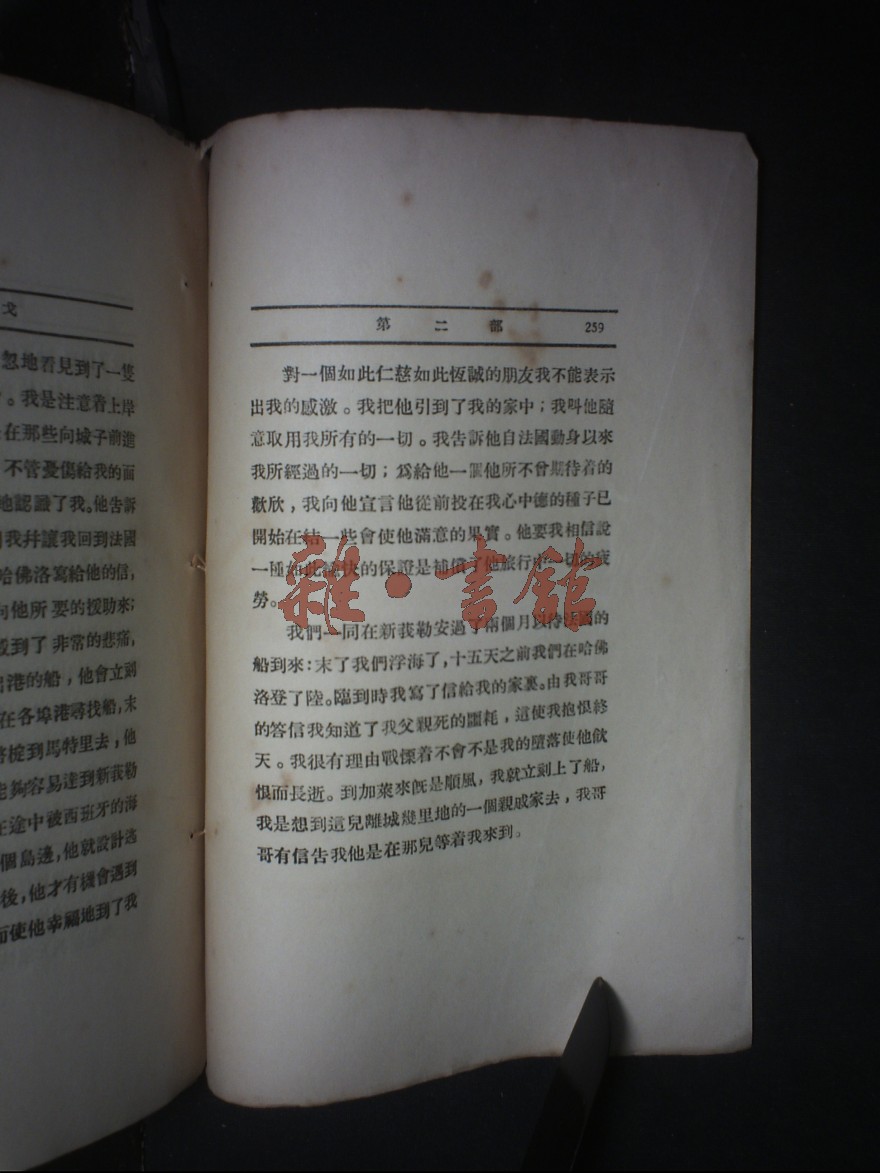 戈
忽地看見到了一隻
。我是注意着上岸
在那些向城子前進
不管憂傷給我的面
地認識了我。他告訴
我幷讓我回到法國
哈佛洛寫給他的信,
向他所要的援助來;
到了非常的悲痛,
出港的船,他會立刻
在各埠港尋找船,末
椗到馬特里去,他
能夠容易達到新莪勒
在途中被西班牙的海
個島邊,他就設計逃
後,他才有機會遇到
而使他幸福地到了我
第二部 259
對一個如此仁慈如此恆誠的朋友我不能表示
出我的感激。我把他引到了我的家中;我叫他隨
意取用我所有的一切。我告訴他自法國動身以來
我所經過的一切;爲給他一個他所不曾期待着的
歡欣,我向他宣言他從前投在我心中德的種子已
開始在結一些會使他滿意的果實。他要我相信說
一種如此快的保證是補償了他旅行中一切的疲
勞。
我們一同在新莪勒安過了兩個月以待法國的
船到來:末了我們浮海了,十五天之前我們在哈佛
洛登了陸。臨到時我寫了信給我的家裏。由我哥哥
的答信我知道了我父親死的噩耗,這使我抱恨終
天。我很有理由戰慄着不會不是我的墮落使他飲
恨而長逝。到加萊來旣是順風,我就立刻上了船,
我是想到這兒離城幾里地的一個親戚家去,我哥
哥有信告我他是在那兒等着我來到。
雜·書館